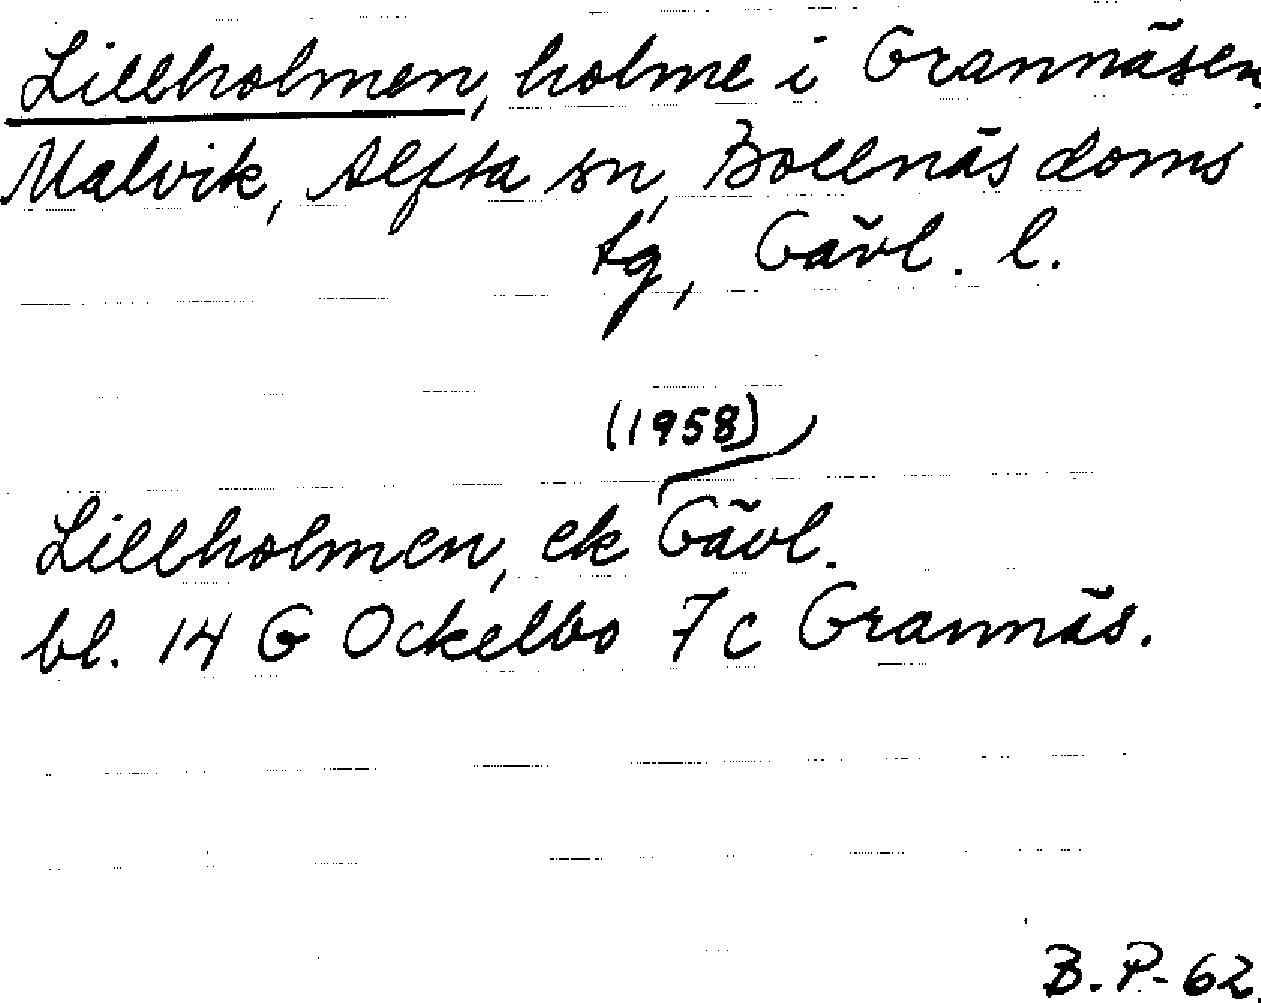 Lillholmen, holme i Grannäsen.
Malvik, Alfta sn, Bollnäs doms
tg, Gävl. l.
(1958)
Lillholmen, ek Gävl.
bl. 14 G Ockelbo 7c Grannäs.
B.P-62.